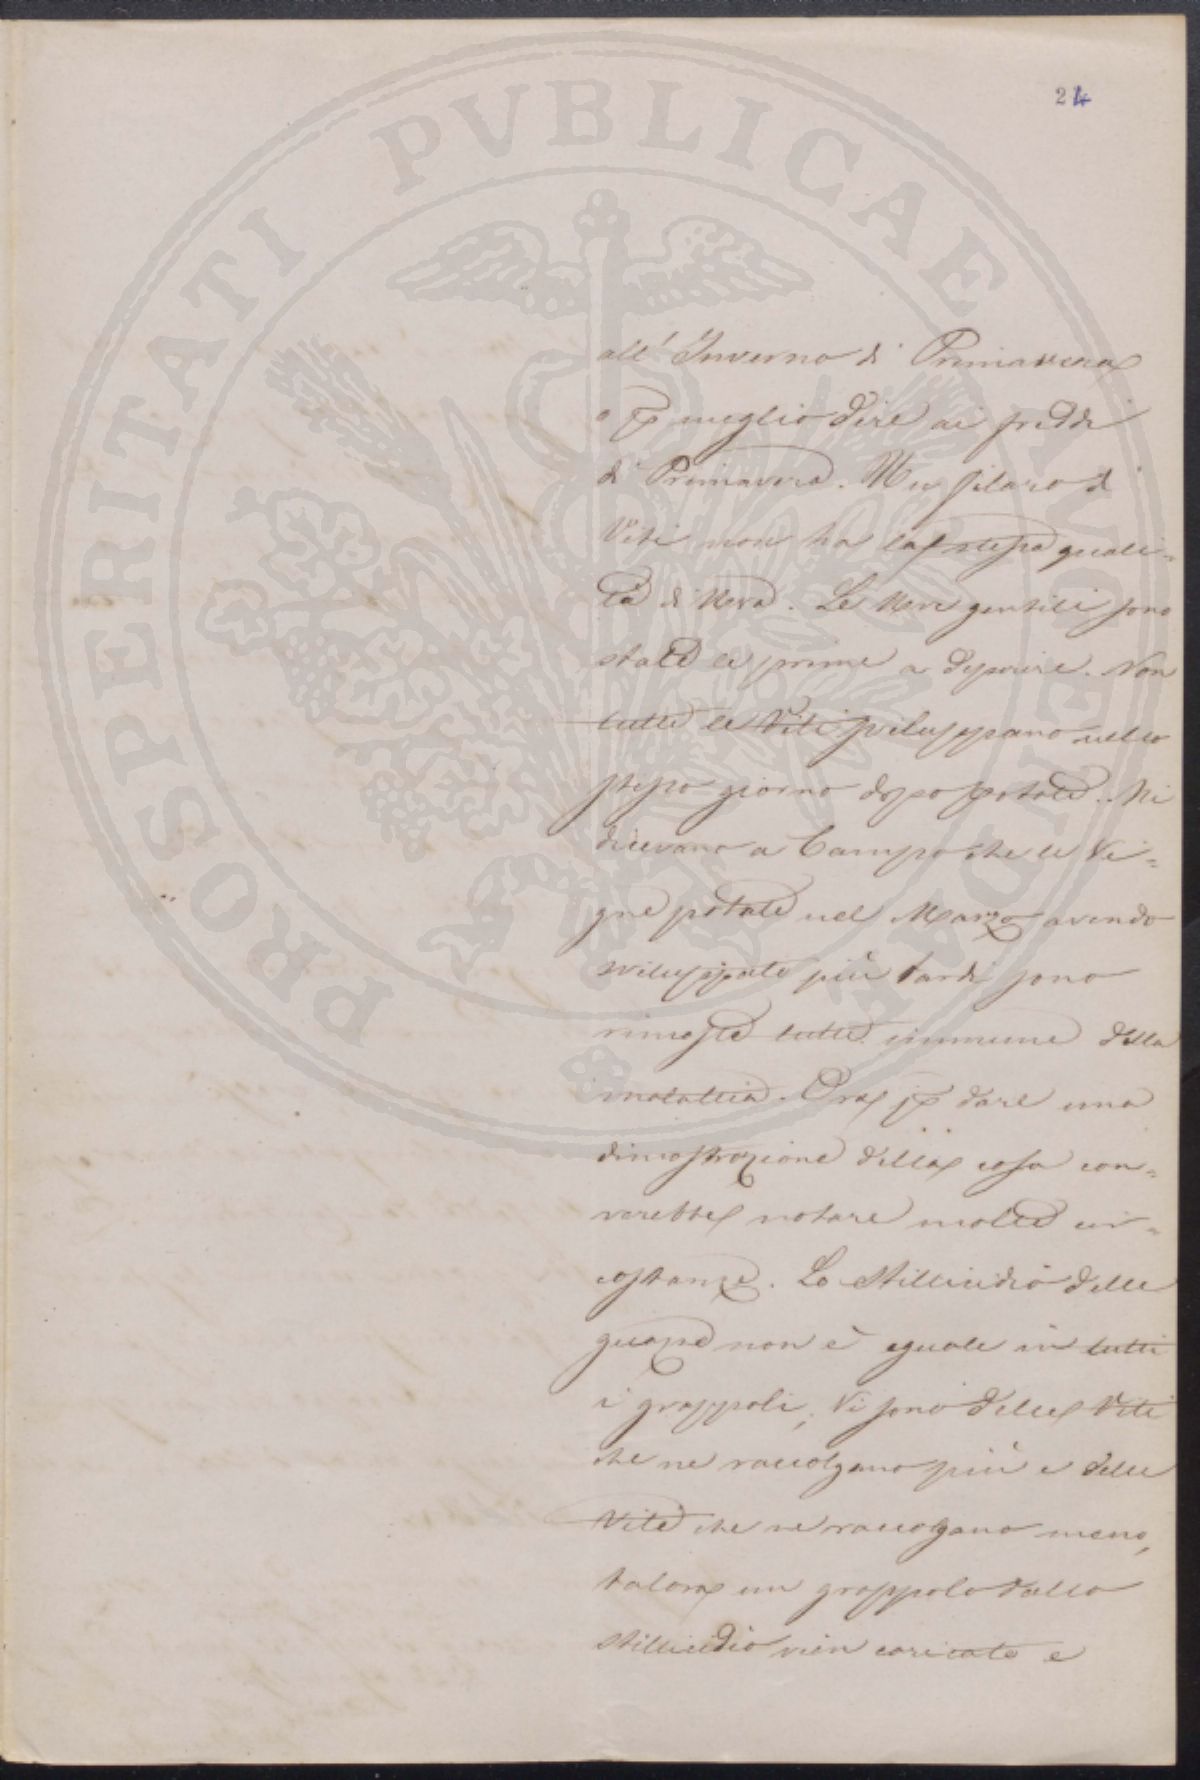 24
PROSPERITATI PVBLICAE AVGENDAE
all' Inverno di Primavera
o p meglio dire ai freddi
di Primavera. Un filaro di
Viti non ha la stessa quali=
tà di Uva. Le Uve gentili sono
state le prime a Non
tutte le Viti sviluppano nello
stesso giorno dopo potate. Mi
dicevano a Campo che le Vi=
gne potate nel Marzo avendo
sviluppate più tardi sono
rimaste tutte immune della
malattia. Ora p dare una
dimostrazione della cosa con=
verebbe notare molte cir=
costanze. Lo Stillicidio delle
non è eguale in tutti
i grappoli, Vi sono delle Viti
che ne raccolgano più e delle
Vite che ne raccolgano meno,
talora un grappolo dallo
stillicidio vien caricato e